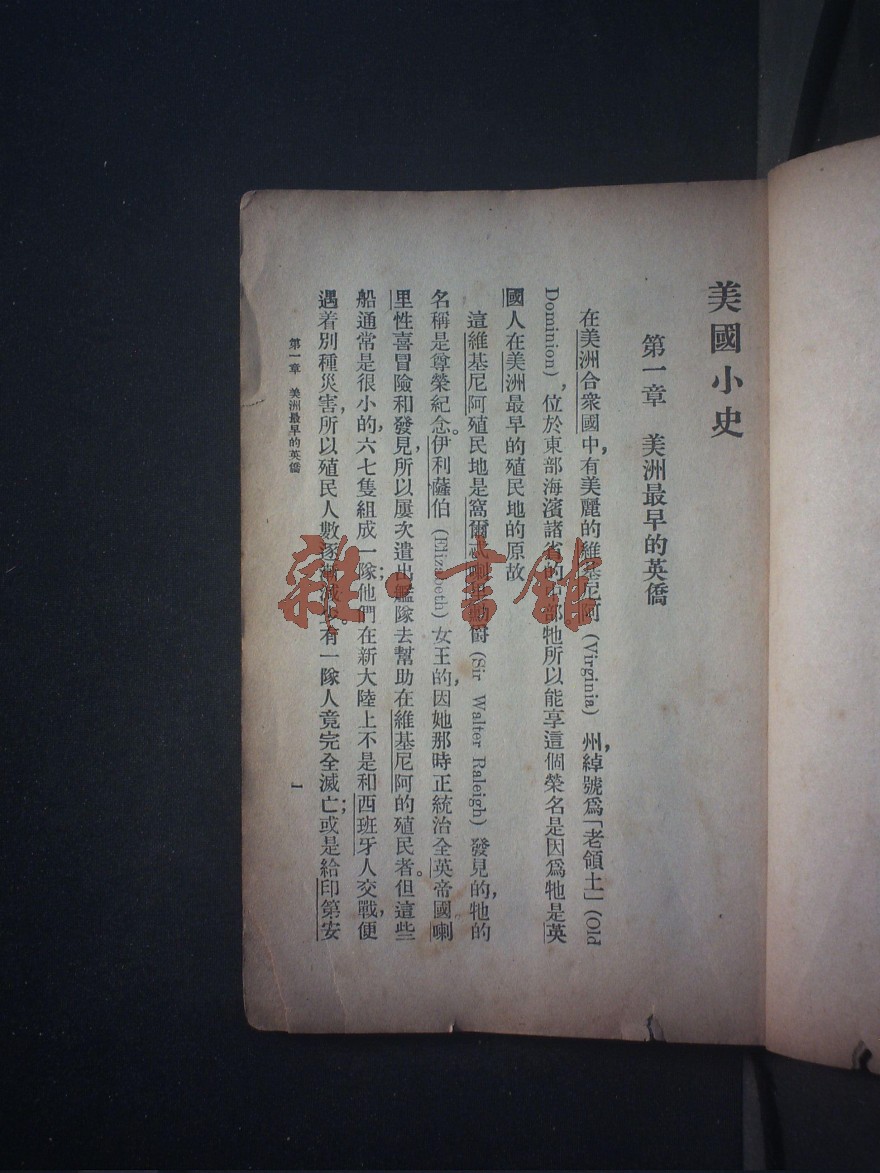 美國小史
第一章　美洲最早的英僑
在美洲合衆國中，有美麗的維基尼阿 (Virginia) 州，綽號爲「老領土」(Old
Dominion)，位於東部海濱諸省的 部牠所以能享這個榮名是因爲牠是英
國人在美洲最早的殖民地的原故
這維基尼阿殖民地是窩爾 勳爵 (Sir Walter Raleigh) 發見的，牠的
名稱是尊榮紀念。伊利薩伯 (Elizabeth) 女王的，因她那時正統治全英帝國。喇
里性喜冒險和發見，所以屢次遣出艦隊去幫助在維基尼阿的殖民者。但這些
船通常是很小的，六七隻組成一隊；他們在新大陸上不是和西班牙人交戰，便
遇着別種災害，所以殖民人數逐漸減少有一隊人竟完全滅亡；或是給印第安
第一章　美洲最早的英僑
1
雜·書館